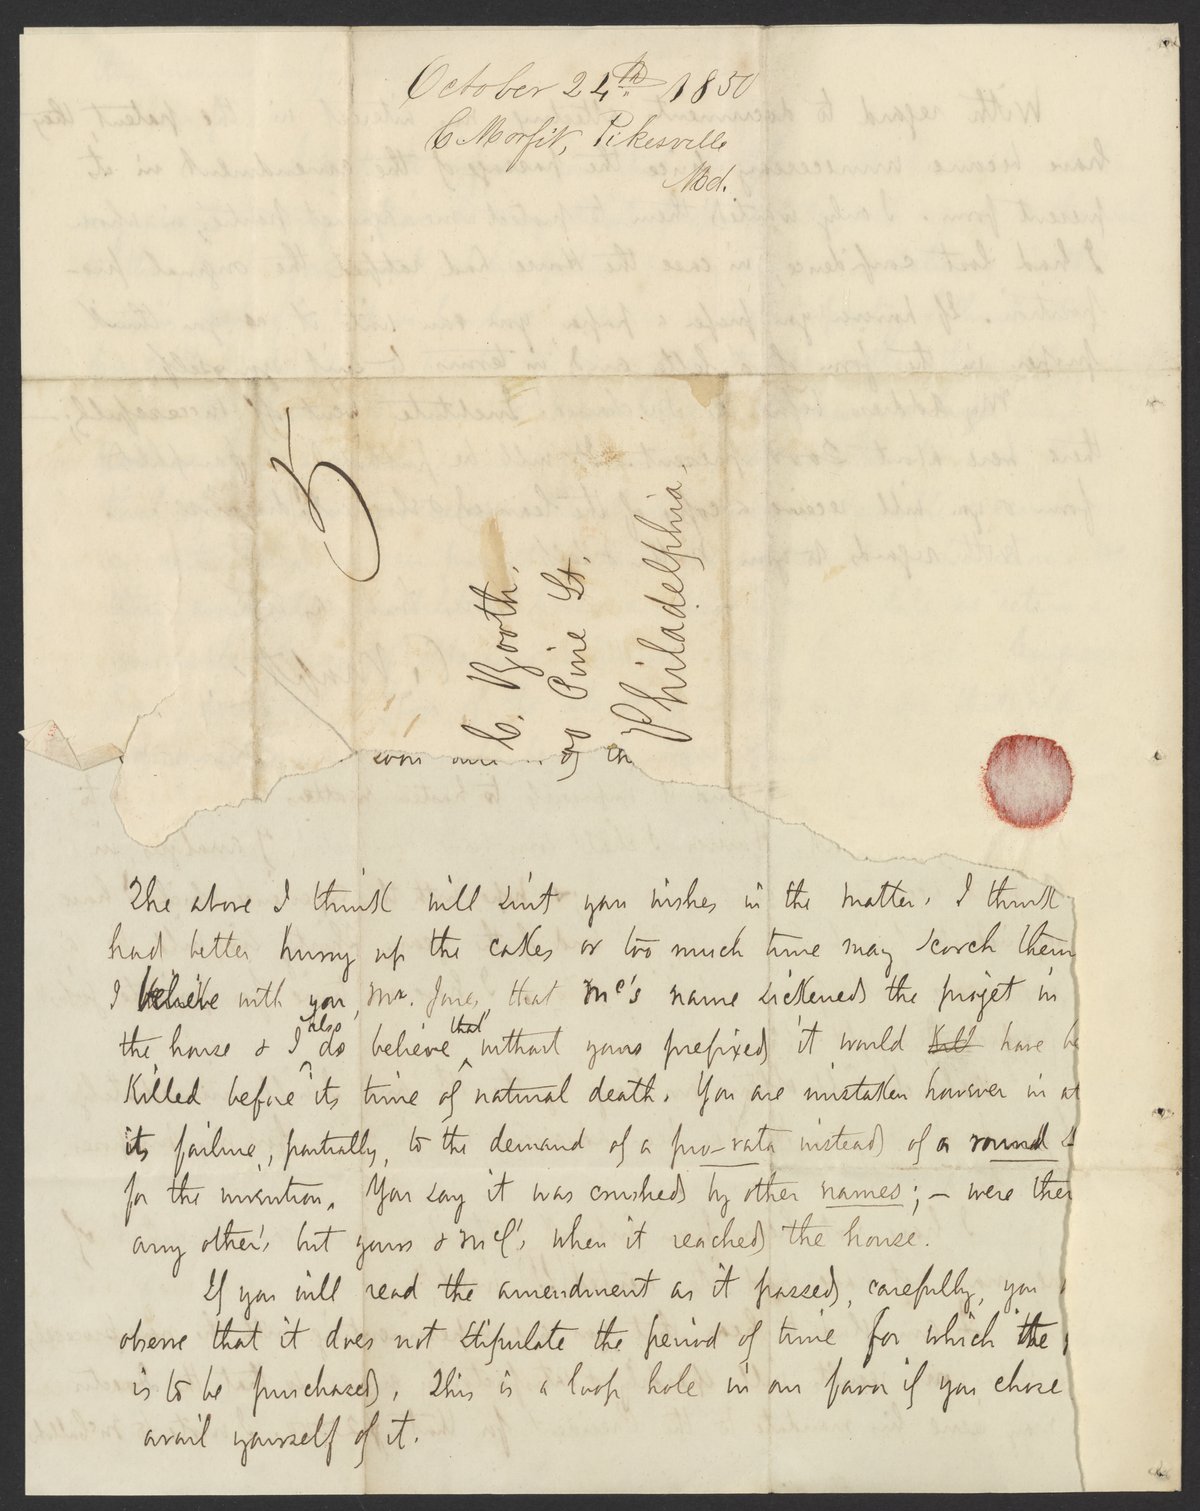 October 24th 1850
C Morfit, Pikesville
Md.
5
C. Booth.
Pine St.
Philadelphia.
The above I think will suit your wishes in the matter. I think
had better hurry up the cakes or too much time may scorch them
I believe with you, Mr. Jones, that Mc's name sickened the projet in
the house & I also do believe that without yours prefixed it would kill have be
killed before its time of natural death. You are mistaken however in at
its failure, partially, to the demand of a pro-rata instead of a round s
for the invention. You say it was crushed by other names; – were ther
any other's but yours & McC's when it reached the house.
If you will read the amendment as it passed, carefully, you
observe that it does not stipulate the period of time for which the
is to be purchased. This is a loop hole in our favor if you chose
avail yourself of it.